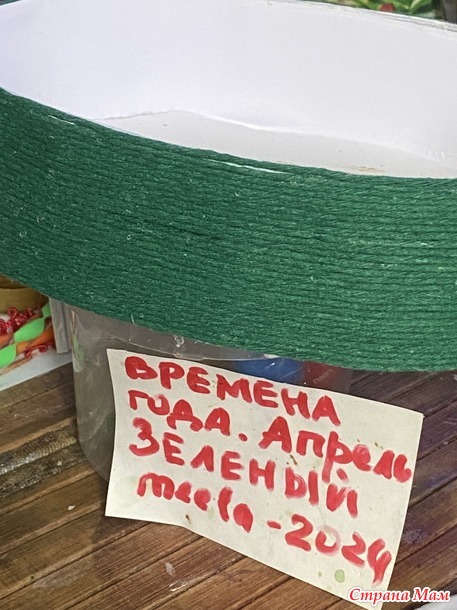 ВРЕМЕНА
ГОДА. Апрель
ЗЕЛЕНЫЙ
mula - 2024
Страна Мам